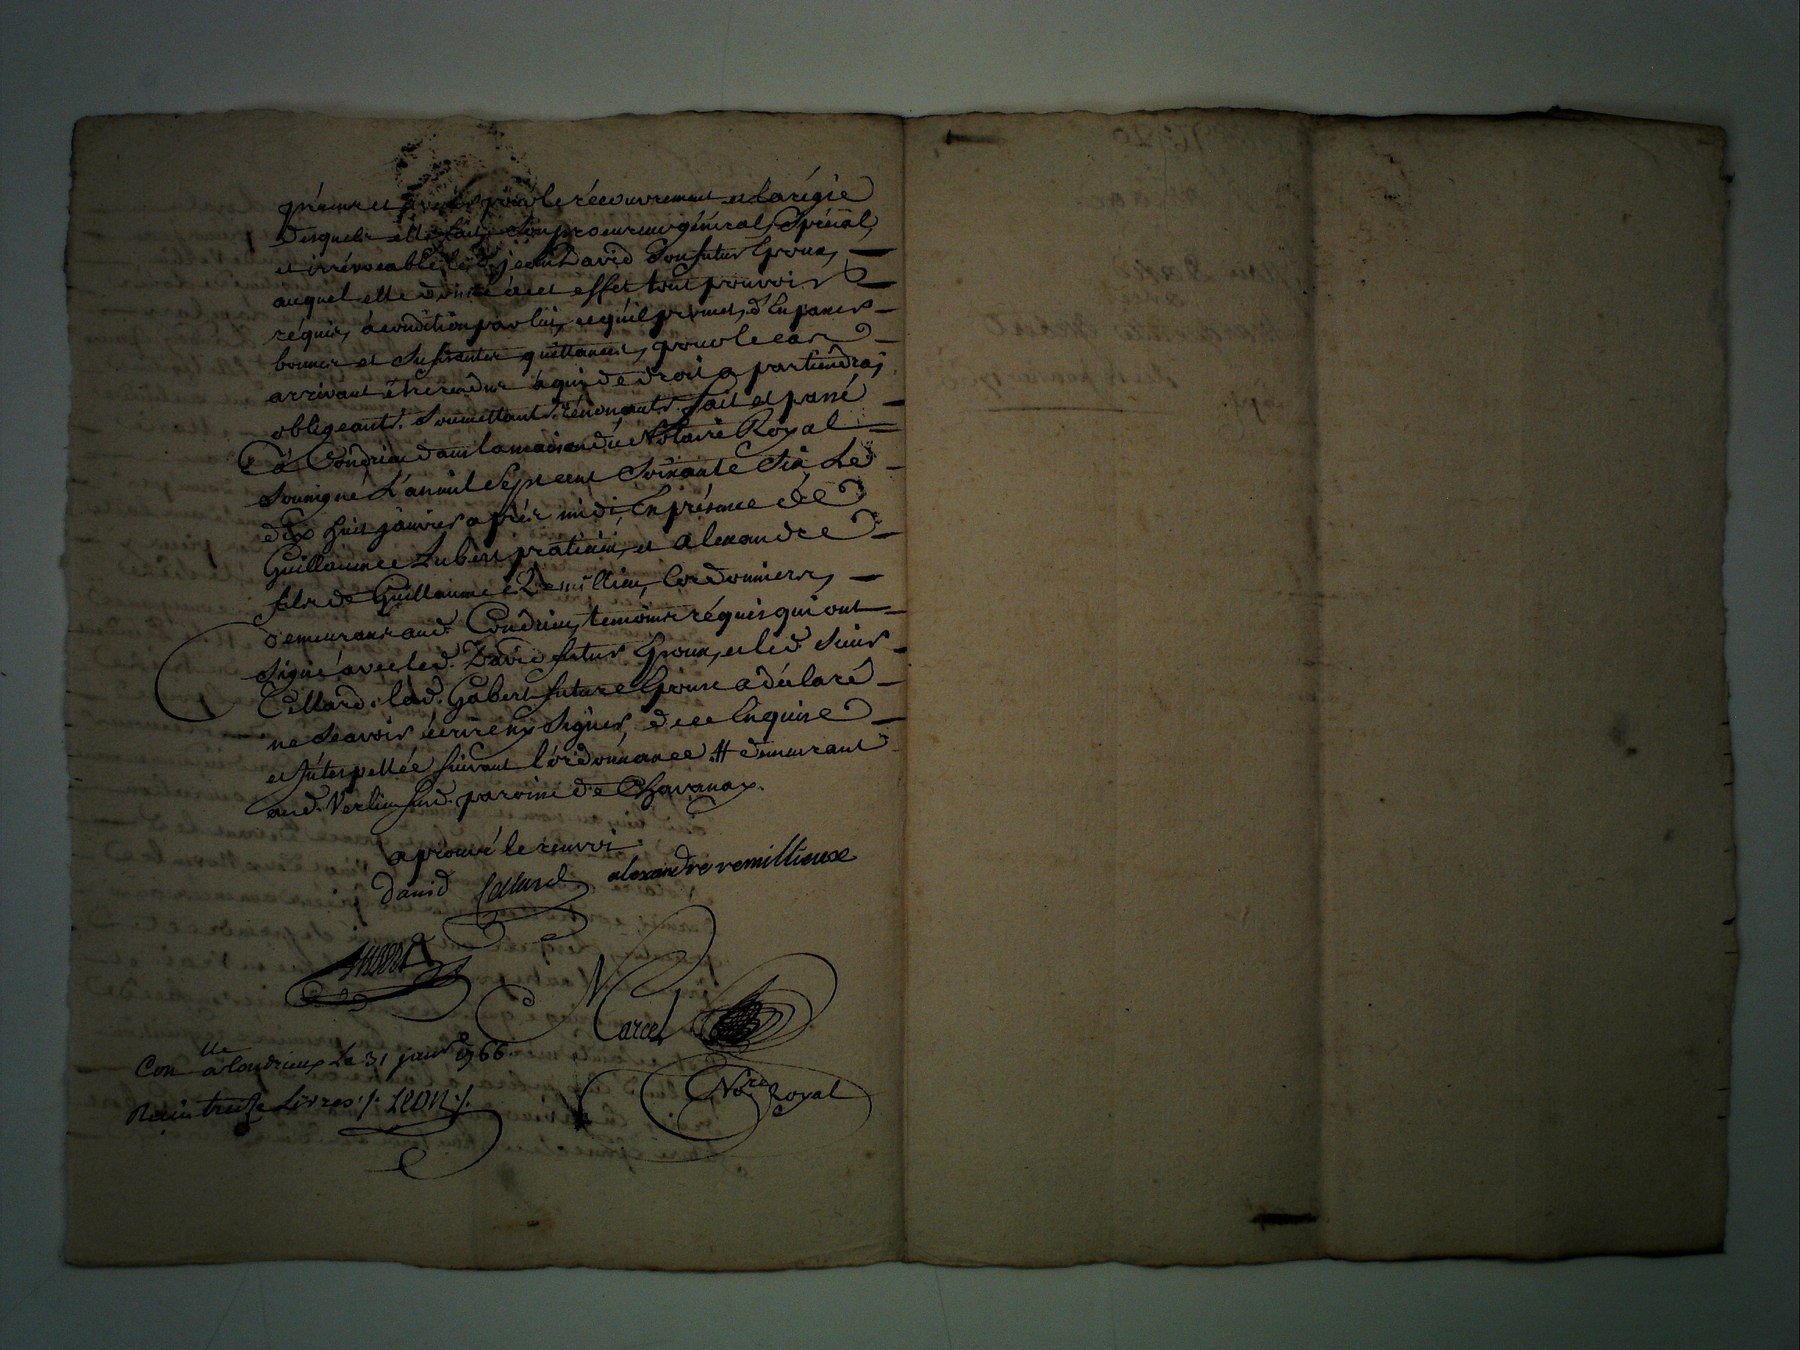 présens et avenirs pour le récouvrement et la régie
desquels elle fait son procureur général, spécial,
et irrévocable led. s. jean David son futur Epoux,
auquel elle donne à cet effet tout pouvoir
réquis, à condition par lui, ce qu'il promet, d'En passer
bonnes et sufisantes quittances, pour le cas
arrivant être rendus à qui de droit apartiendra;
obligeants, soumettants, rénonçants, fait et passé
à Condrieu dans la maison du Notaire Royal
soussigné L'an mil sept cent soixante six Le
dix huit janvier après midi, En présence de
Guillaume Imbert praticien, et alexandre
fils de Guillaume Remillieu, Cordonniers,
demeurans aud. Condrieu, temoins réquis qui ont
signé avec led. David futur Epoux, et led. sieur
Cellard. lad. Gabert future Epouse a déclaré
ne sçavoir écrire ny signer, de ce Enquise
et Interpellée suivant l'ordonnance # demeurant
aud. Verlieu susd. paroisse de Chavanay.
aprouvé le renvoi
j david Cellard alexandre remillieux
Imbert
Marcel
Nore Royal
Con lle a Condrieux Le 31 janv. 1766
Recu treize Livres ./. Leon ./.